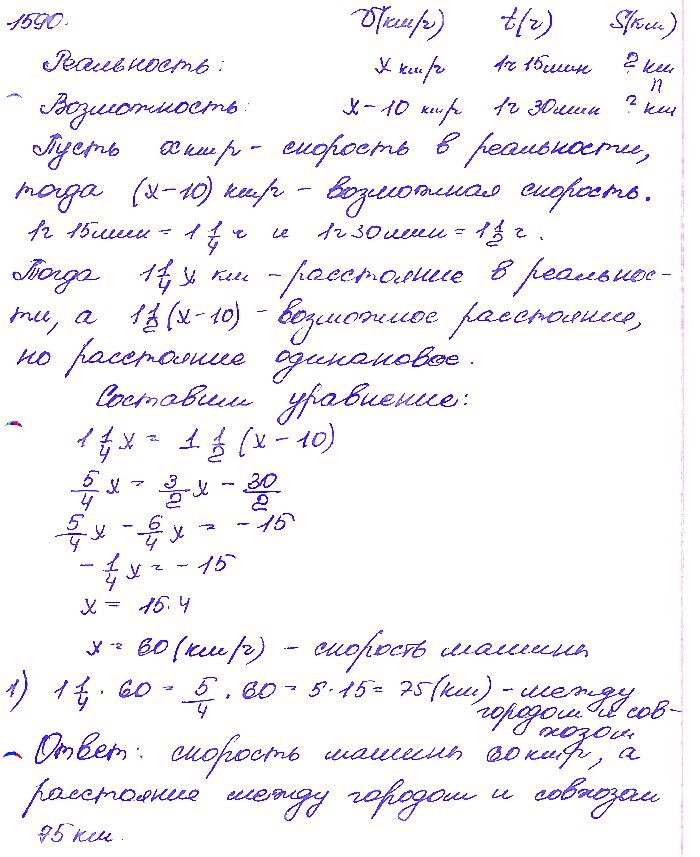 1590. V(км/ч) t(ч) S(км)
Реальность: x км/ч 1ч 15мин ? км
Возможность: x-10 км/ч 1ч 30мин ? км
Пусть x км/ч - скорость в реальности,
тогда (x-10) км/ч - возможная скорость.
1ч 15мин = 1 1/4 ч и 1ч 30мин = 1 1/2 ч.
Тогда 1 1/4 x км - расстояние в реальнос-
ти, а 1 1/2 (x-10) - возможное расстояние,
но расстояние одинаковое.
Составим уравнение:
1 1/4 x = 1 1/2 (x-10)
5/4 x = 3/2 x - 30/2
5/4 x - 6/4 x = -15
- 1/4 x = -15
x = 15·4
x = 60 (км/ч) - скорость машины
1) 1 1/4 · 60 = 5/4 · 60 = 5·15 = 75(км) - между
городом и сов-
хозом
Ответ: скорость машины 60 км/ч, а
расстояние между городом и совхозом
75 км.